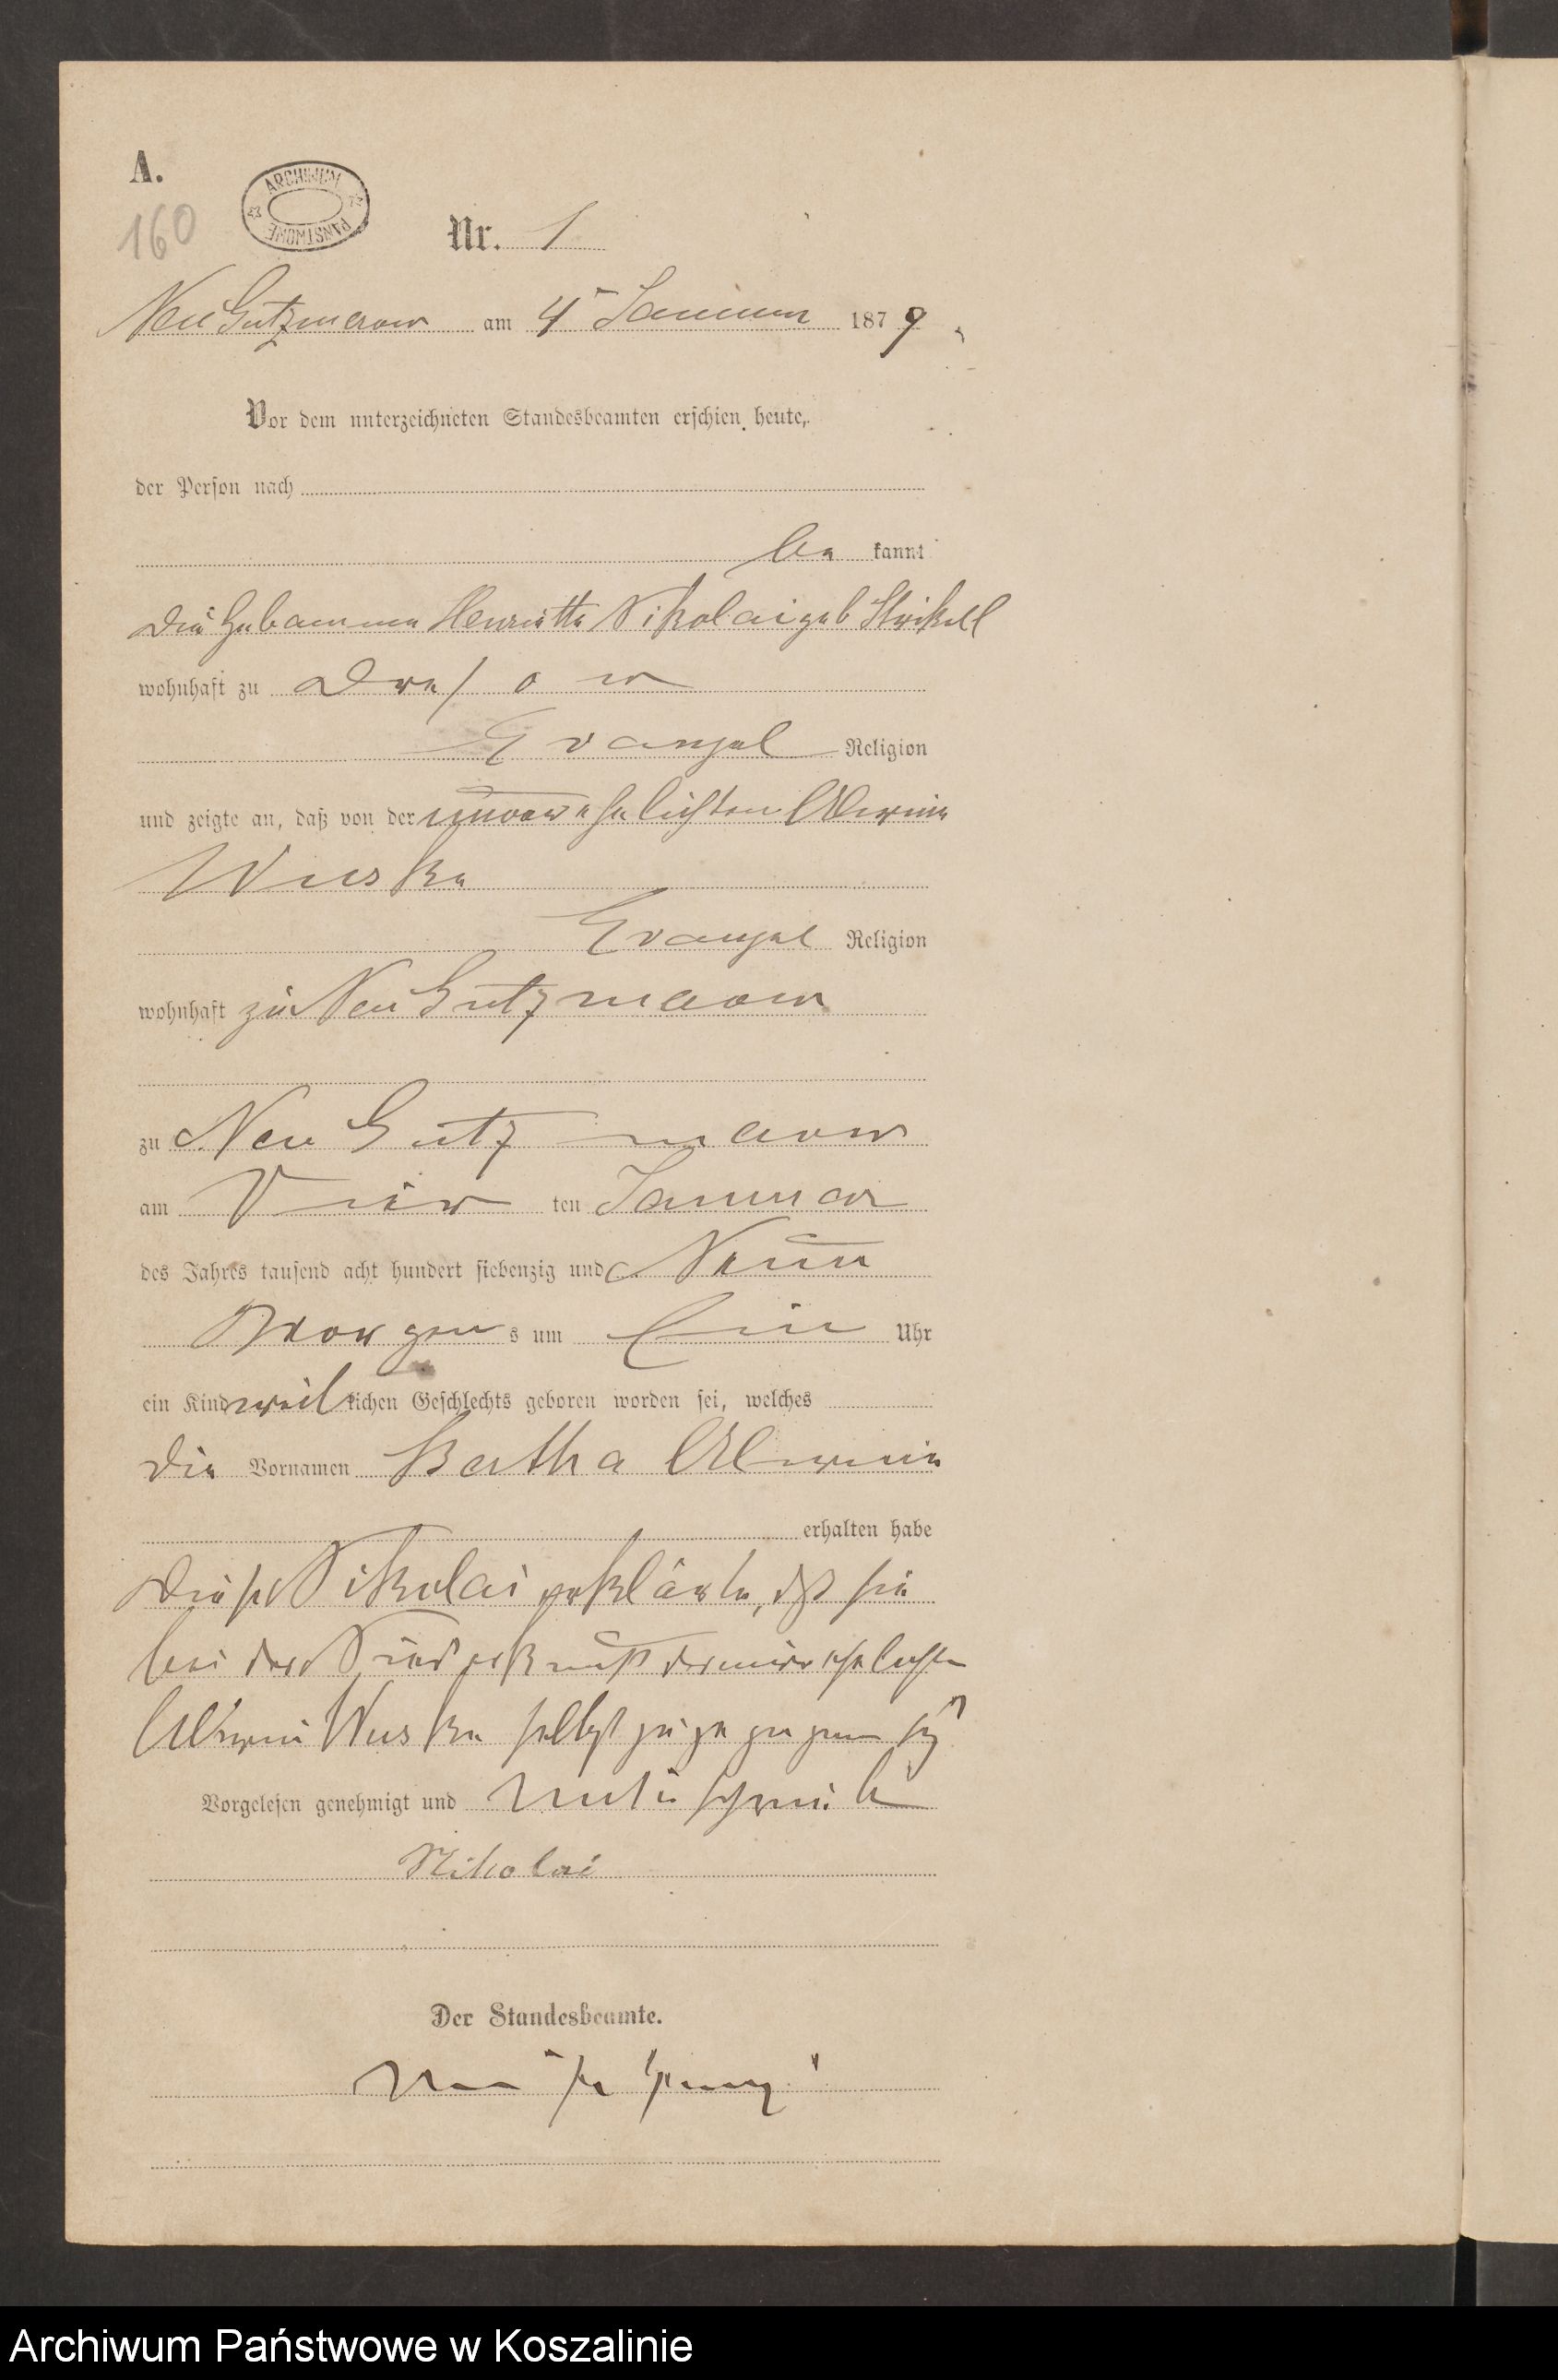 A.
160
ARCHIWUM PAŃSTWOWE
Nr. 1
Neu Gutzmerow am 4t Januar 1879
Vor dem unterzeichneten Standesbeamten erschien heute,
der Person nach
be kannt
die Hebamme Henriette Nikolai geb
wohnhaft zu Dresow
Evangel Religion
und zeigte an, daß von der unverehelichten Alwine
Wuske
Evangel Religion
wohnhaft zu Neu Gutzmerow
zu Neu Gutzmerow
am Vier ten Januar
des Jahres tausend acht hundert siebenzig und Neun
Morgen s um Ein Uhr
ein Kind weiblichen Geschlechts geboren worden sei, welches
die Vornamen Bertha Alwine
erhalten habe
Die p Nikolai erklärte, daß sie
bei der Niederkunft der unverehelichten
Alwine Wuske selbst zugegegen sei
Vorgelesen genehmigt und unterschrieben
Nikolai
Der Standesbeamte.
Archiwum Państwowe w Koszalinie